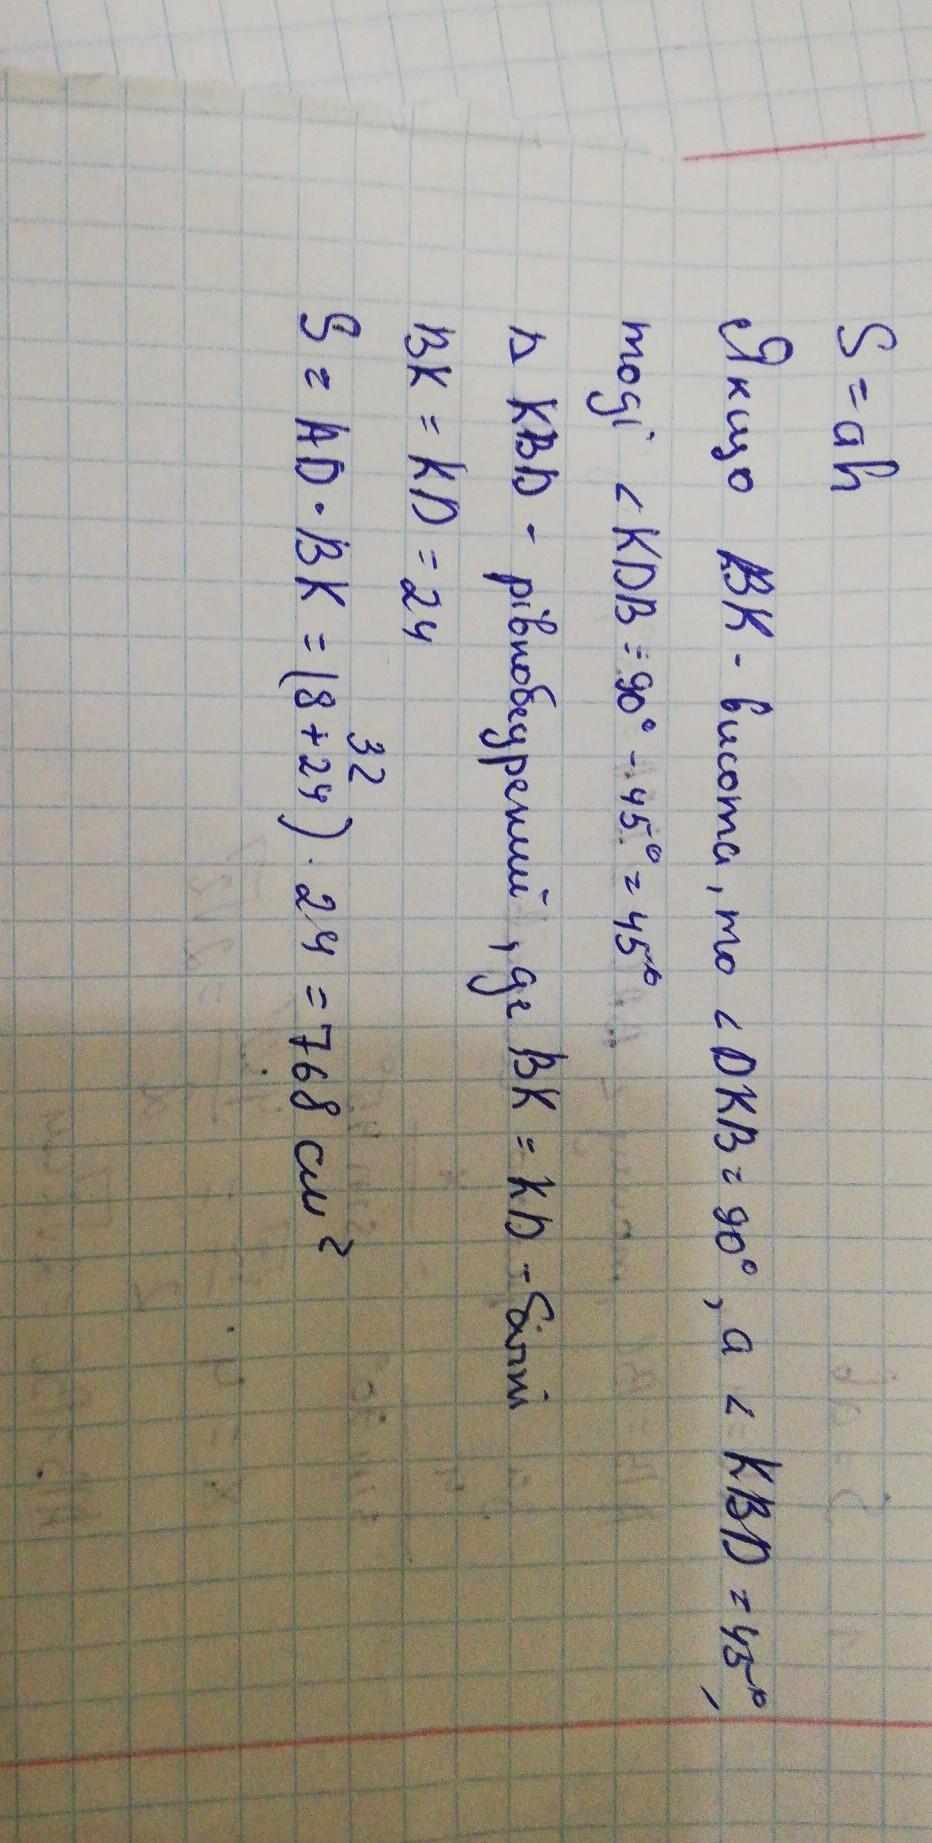 S = ah
Якщо BK - висота, то < DKB = 90°, а < KBD = 45°,
тоді < KDB = 90° - 45° = 45°
Δ KBD - рівнобедрений, де BK = KD -
BK = KD = 24
32
S = AD · BK = (8 + 24) · 24 = 768 см²